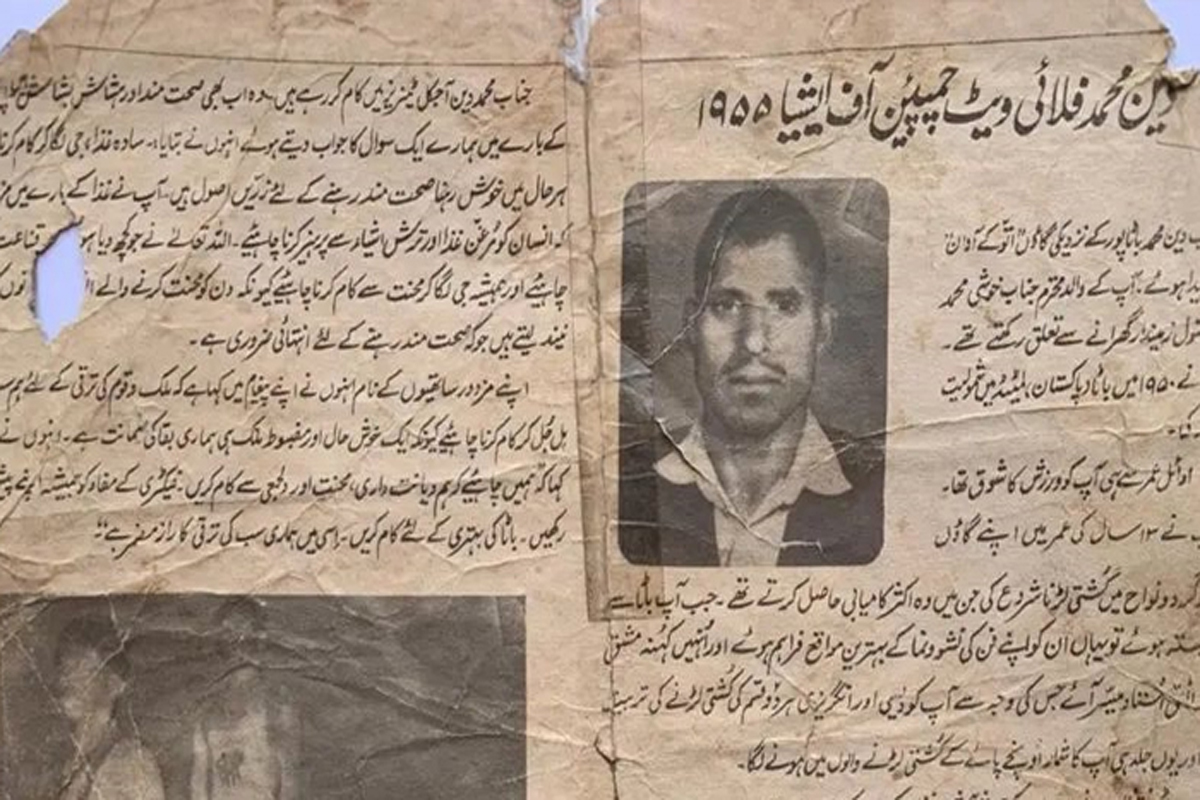 دین محمد فلائی ویٹ چمپئن آف ایشیا ۱۹۵۵
دین محمد باٹاپور کے نزدیکی گاؤں اتوکے آوان
ہوئے۔ آپ کے والد محترم جناب خوشی محمد
زمیندار گھرانے سے تعلق رکھتے تھے۔
نے ۱۹۵۰ میں باٹا (پاکستان) لمیٹڈ میں شمولیت
کی۔
اوائل عمر سے ہی آپ کو ورزش کا شوق تھا۔
نے ۱۳ سال کی عمر میں اپنے گاؤں
گرد و نواح میں کُشتی لڑنا شروع کی جن میں وہ اکثر کامیابی حاصل کرتے تھے۔ جب آپ باٹا سے
ہوئے تو یہاں ان کو اپنے فن کی نشوونما کے بہترین مواقع فراہم ہوئے اور انہیں کہنہ مشق
استاد میسّر آئے جس کی وجہ سے آپ کو دیسی اور انگریزی ہر دو قسم کی کُشتی لڑنے کی تربیت
اور یوں جلد ہی آپ کا شمار اونچے پائے کے کُشتی لڑنے والوں میں ہونے لگا۔
جناب محمد دین آجکل ٹینریز میں کام کر رہے ہیں۔ وہ اب بھی صحت مند اور ہشاش بشاش
کے بارے میں ہمارے ایک سوال کا جواب دیتے ہوئے انہوں نے بتایا:۔ سادہ غذا، جی لگا کر کام کرنا
ہر حال میں خوش رہنا صحت مند رہنے کے لئے زرّیں اصول ہیں۔ آپ نے غذا کے بارے میں
کہ انسان کو مُرغّن غذا اور ترش اشیاء سے پرہیز کرنا چاہیئے۔ اللہ تعالےٰ نے جو کچھ دیا ہو قناعت
چاہیئے اور ہمیشہ جی لگا کر محنت سے کام کرنا چاہیئے کیونکہ دن کو محنت کرنے والے
نیند لیتے ہیں جو کہ صحت مند رہنے کے لئے انتہائی ضروری ہے۔
اپنے مزدور ساتھیوں کے نام انہوں نے اپنے پیغام میں کہا ہے کہ ملک و قوم کی ترقی کے لئے ہم سب
مل جُل کر کام کرنا چاہیئے کیونکہ ایک خوش حال اور مضبوط ملک ہی ہماری بقا کی ضمانت ہے۔ انہوں نے
کہا کہ ہمیں چاہیئے کہ ہم دیانت داری، محنت اور دلجمعی سے کام کریں۔ فیکٹری کے مفاد کو ہمیشہ اپنے پیش
رکھیں۔ باٹا کی بہتری کے لئے کام کریں۔ اِسی میں ہماری سب کی ترقی کا راز مضمر ہے"۔